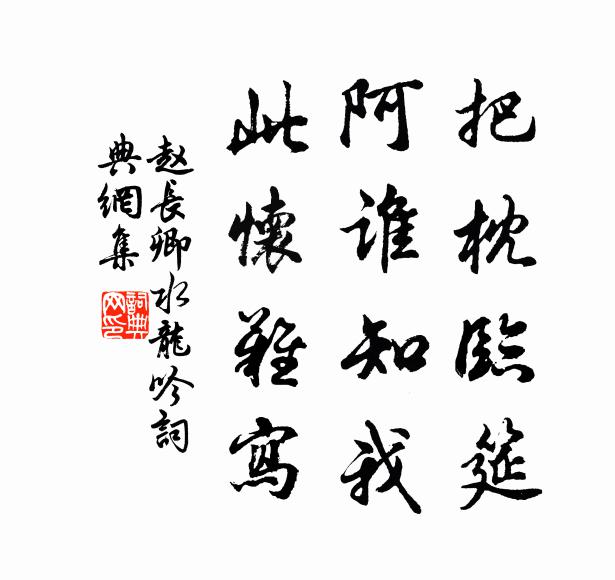 把枕臨筵
阿谁知我
此懷難寫
赵長卿水龍吟詞
典網集
詞典
网印